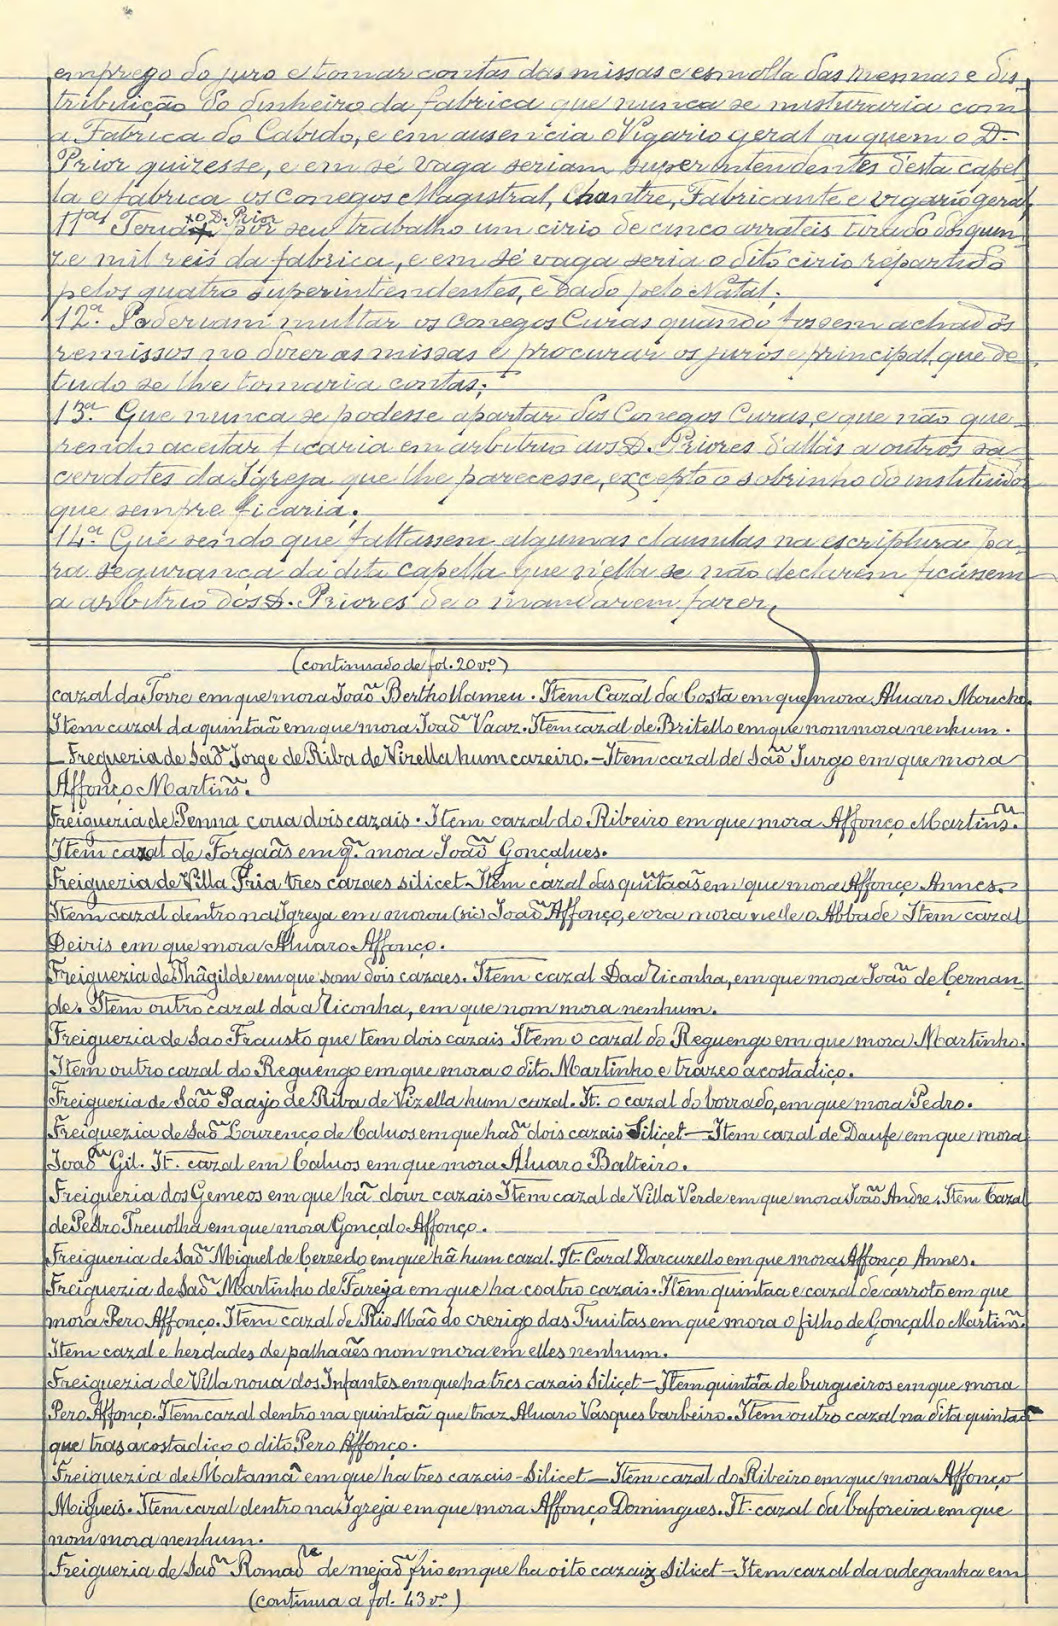 emprego do juro e tomar contas das missas e esmolla das mesmas e dis-
tribuição do dinheiro da fabrica que nunca se misturaria com
a Fabrica do Cabido, e em ausencia o Vigario geral ou quem o D.
Prior quizesse, e em sé vaga seriam superintendentes d'esta capel-
la e fabrica os Conegos Magistral, Chantre, Fabricante e vigario geral,
11ª Teria o D. Prior por seu trabalho um cirio de cinco arrateis tirado dos quin-
ze mil reis da fabrica, e em sé vaga seria o dito cirio repartido
pelos quatro superintendentes, e dado pelo Natal;
12ª. Poderiam multar os Conegos Curas quando fossem achados
remissos no dizer as missas e procurar os juros e principal, que de
tudo se lhe tomaria contas;
13ª. Que nunca se podesse apartar dos Conegos Curas, e que não que-
rendo aceitar ficaria em arbitrio dos D. Priores dal-lás a outros sa-
cerdotes da Igreja que lhe parecesse, excepto o sobrinho do instituidor
que sempre ficaria;
14ª. Que sendo que faltassem algumas clausulas na escriptura pa-
ra segurança da dita capella que n'ella se não declarem ficassem
a arbitrio dos D. Priores de o mandarem fazer,
(continuado de fol. 20 vº)
cazal da Torre em que mora Joaõ Berthollameu. Item Cazal da Costa em que mora Aluaro Moucho.
Item cazal da quintaã em que mora Joaõ Vaaz. Item cazal de Britello em que nom mora nenhum.
Freguezia de Saõ Jorge de Riba de Vizella hum cazeiro. – Item cazal de Saõ Jurgo em que mora
Affonço Martins.
Freiguezia de Penna coua dois cazais. Item cazal do Ribeiro em que mora Affonço Martins.
Item cazal de Forgaãs em q. mora Joaõ Gonçalues.
Freiguezia de Villa Fria tres cazaes silicet – Item cazal das quitaãs em que mora Affonço Annes.
Item cazal dentro na Igreja em morou (sic) Joaõ Affonço, e ora mora nelle o Abbade Item cazal
Deiris em que mora Aluaro Affonço.
Freiguezia de Thãgilde em que som dois cazaes. Item cazal Daa Ticonha, em que mora Joaõ de Cernan-
de. Item outro cazal daa Ticonha, em que nom mora nenhum.
Freiguezia de Sao Frausto que tem dois cazais Item o cazal do Reguengo em que mora Martinho.
Item outro cazal do Reguengo em que mora o dito Martinho e trazeo acostadiço.
Freiguezia de Saõ Paayo de Riba de Vizella hum cazal. It. o cazal do borrado, em que mora Pedro.
Freiguezia de Saõ Lourenço de Caluos em que haõ dois cazais Siliçet – Item cazal de Daufe em que mora
Joaõ Gil. It. cazal em Caluos em que mora Aluaro Balteiro.
Freigueria dos Gemeos em que hã douz cazais Item cazal de Villa Verde em que mora Joaõ Andre. Item Cazal
de Pedro Treuolha em que mora Gonçalo Affonço.
Freiguezia de Saõ Miguel de Cerzedo em que hã hum cazal. It. Cazal Darcuzello em que mora Affonço Annes.
Freiguezia de Saõ Martinho de Fareja em que ha coatro cazais. Item quintaa e cazal de carroto em que
mora Pero Affonço. Item cazal de Rio Mão do crerigo das Truitas em que mora o filho de Gonçallo Martins.
Item cazal e herdades de palhaães nom mora em elles nenhum.
Freiguezia de Villa noua dos Infantes em que ha tres cazais Siliçet – Item quintãa de burgueiros em que mora
Pero Affonço. Item cazal dentro na quintaã que traz Aluaro Vasques barbeiro. Item outro cazal na dita quintaã
que tras acostadiço o dito Pero Affonço.
Freiguezia de Matamã em que ha tres cazais – Silicet – Item cazal do Ribeiro em que mora Affonço
Moigueis. Item cazal dentro na Igreja em que mora Affonço Domingues. It. cazal da baforeira em que
nom mora nenhum.
Freiguezia de Saõ Romaõ de mejaõ frio em que ha oito cazaiz Silicet – Item cazal da adeganha em
(continua a fol. 43 vº)